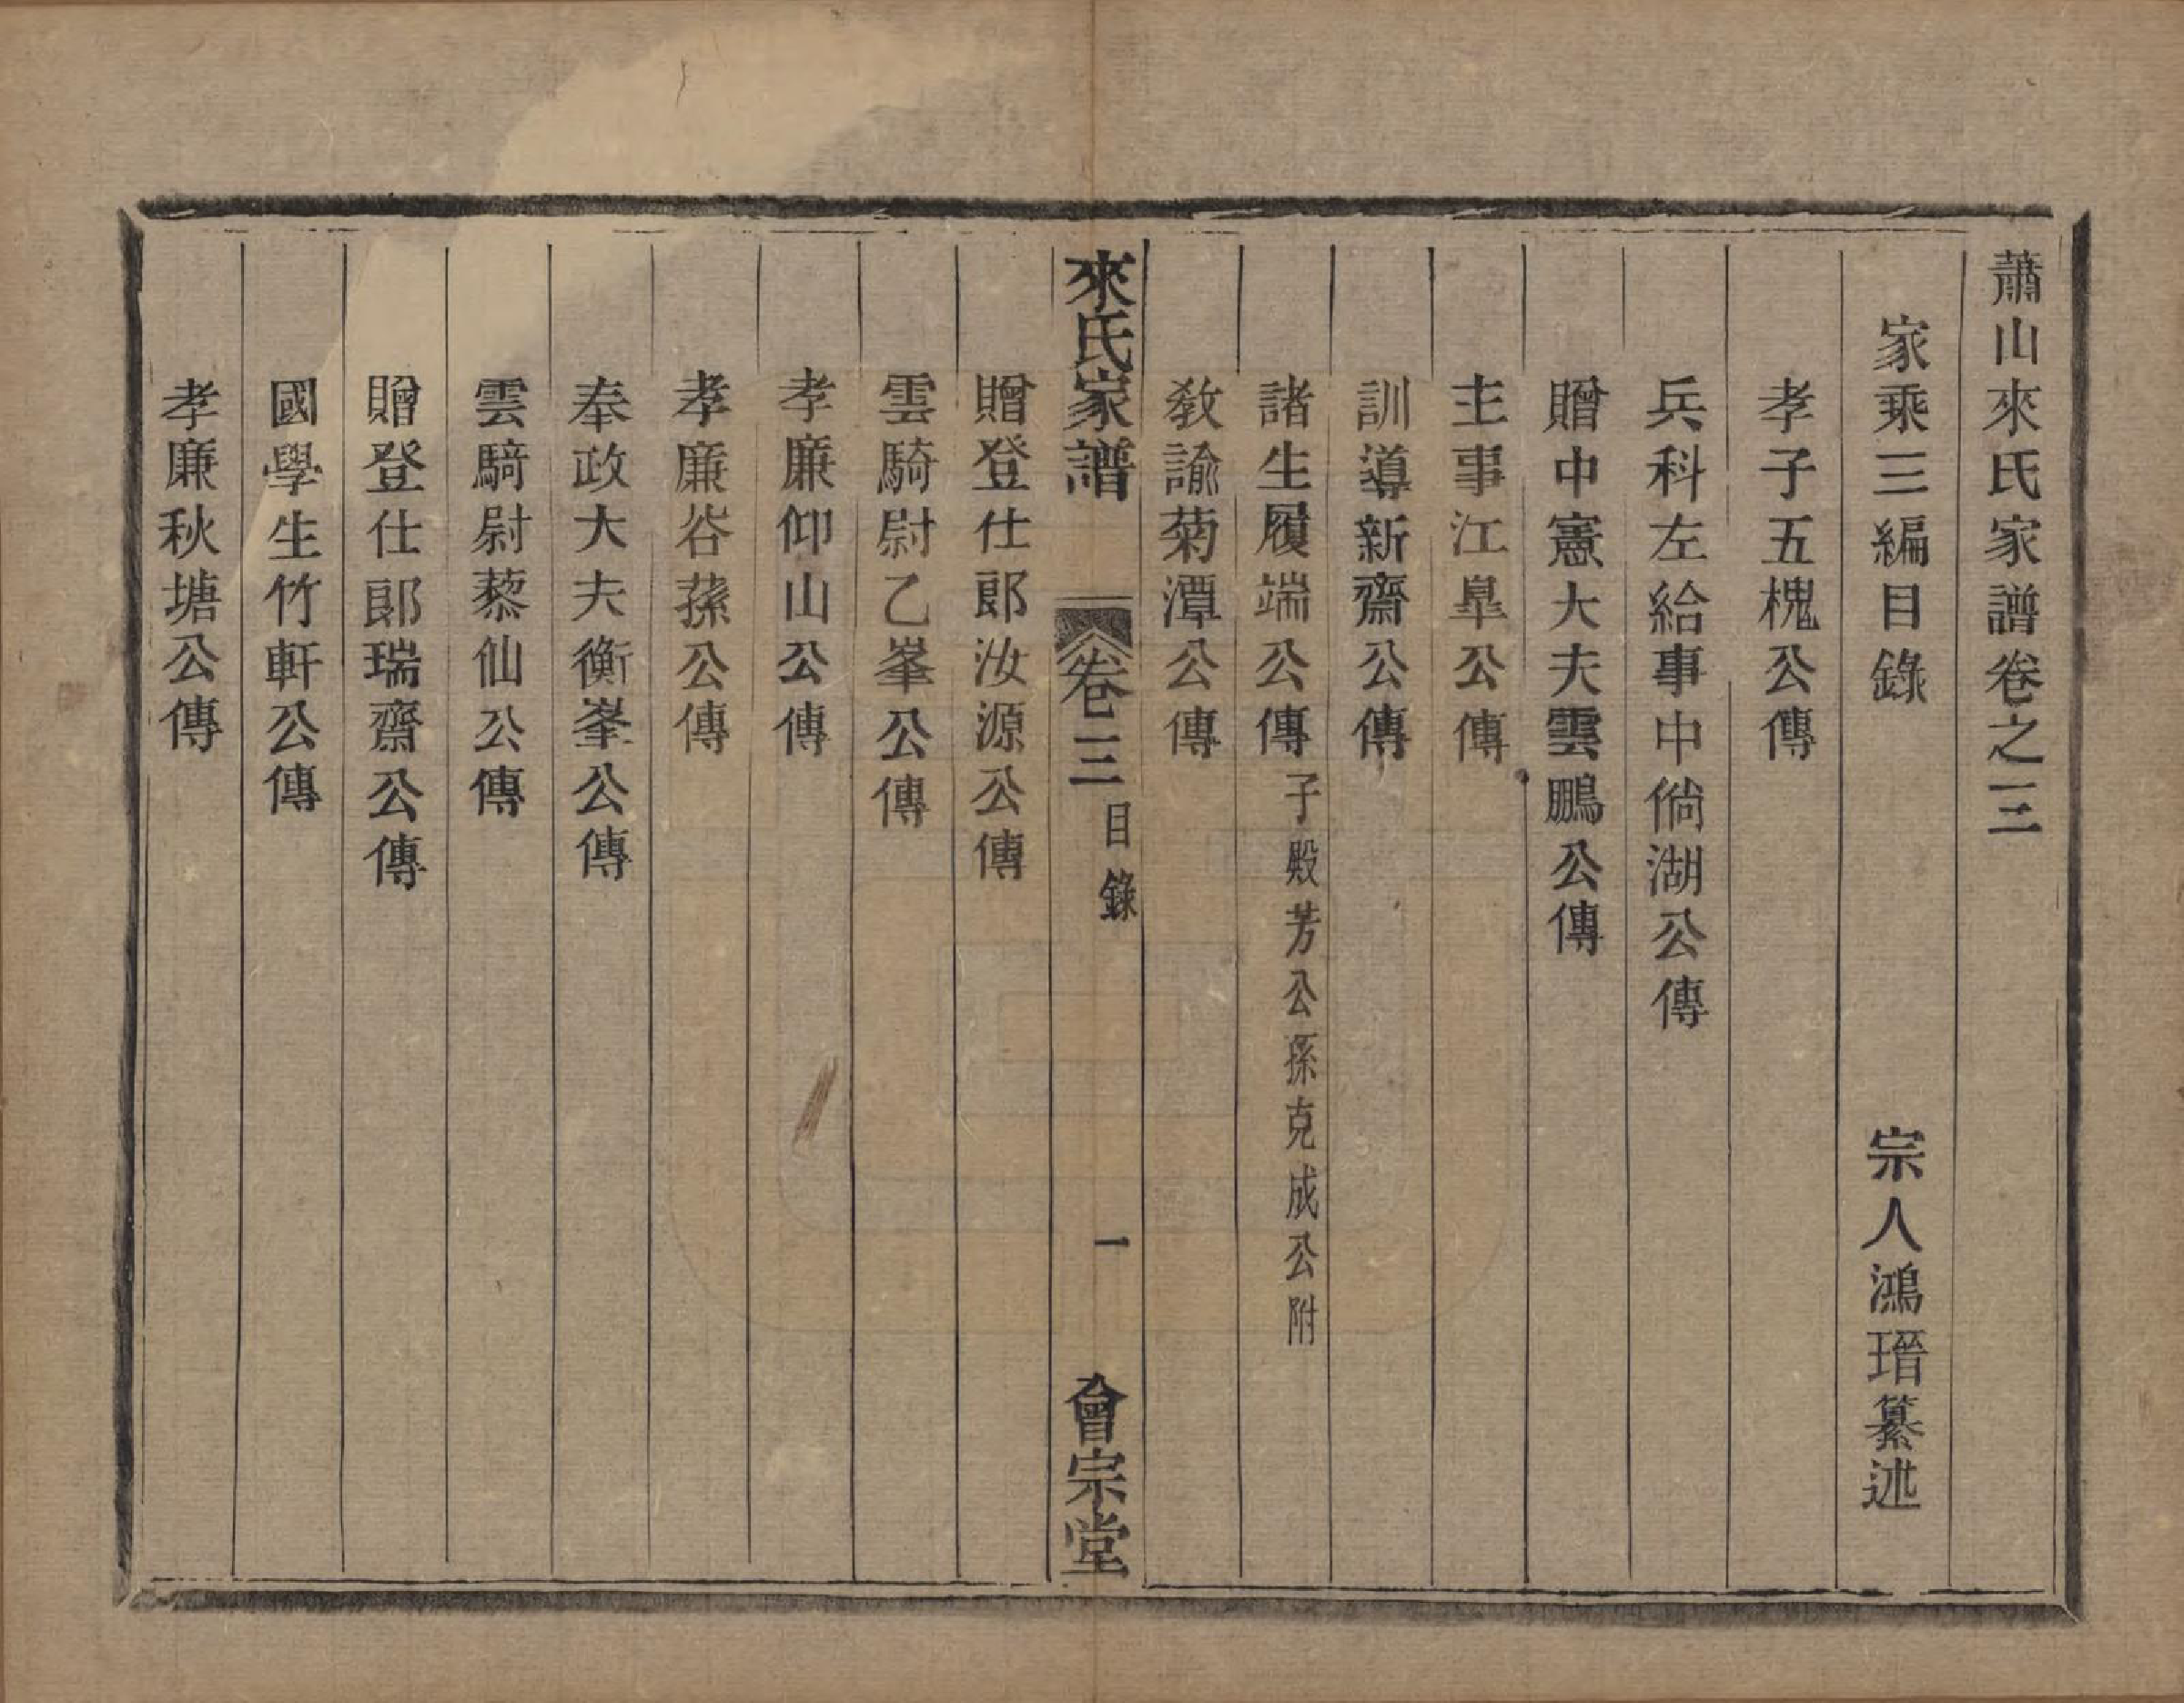 蕭山來氏家譜卷之三
家乘三編目錄
宗人鴻瑨纂述
孝子五槐公傳
兵科左給事中倘湖公傳
贈中憲大夫雲鵬公傳
主事江臯公傳
訓導新齋公傳
諸生履端公傳子殿芳公孫克成公附
教諭菊潭公傳
來氏家譜
卷三
目錄
一
會宗堂
贈登仕郎汝源公傳
雲騎尉乙峯公傳
孝廉仰山公傳
孝廉谷蓀公傳
奉政大夫衡峯公傳
雲騎尉藜仙公傳
贈登仕郎瑞齋公傳
國學生竹軒公傳
孝廉秋塘公傳